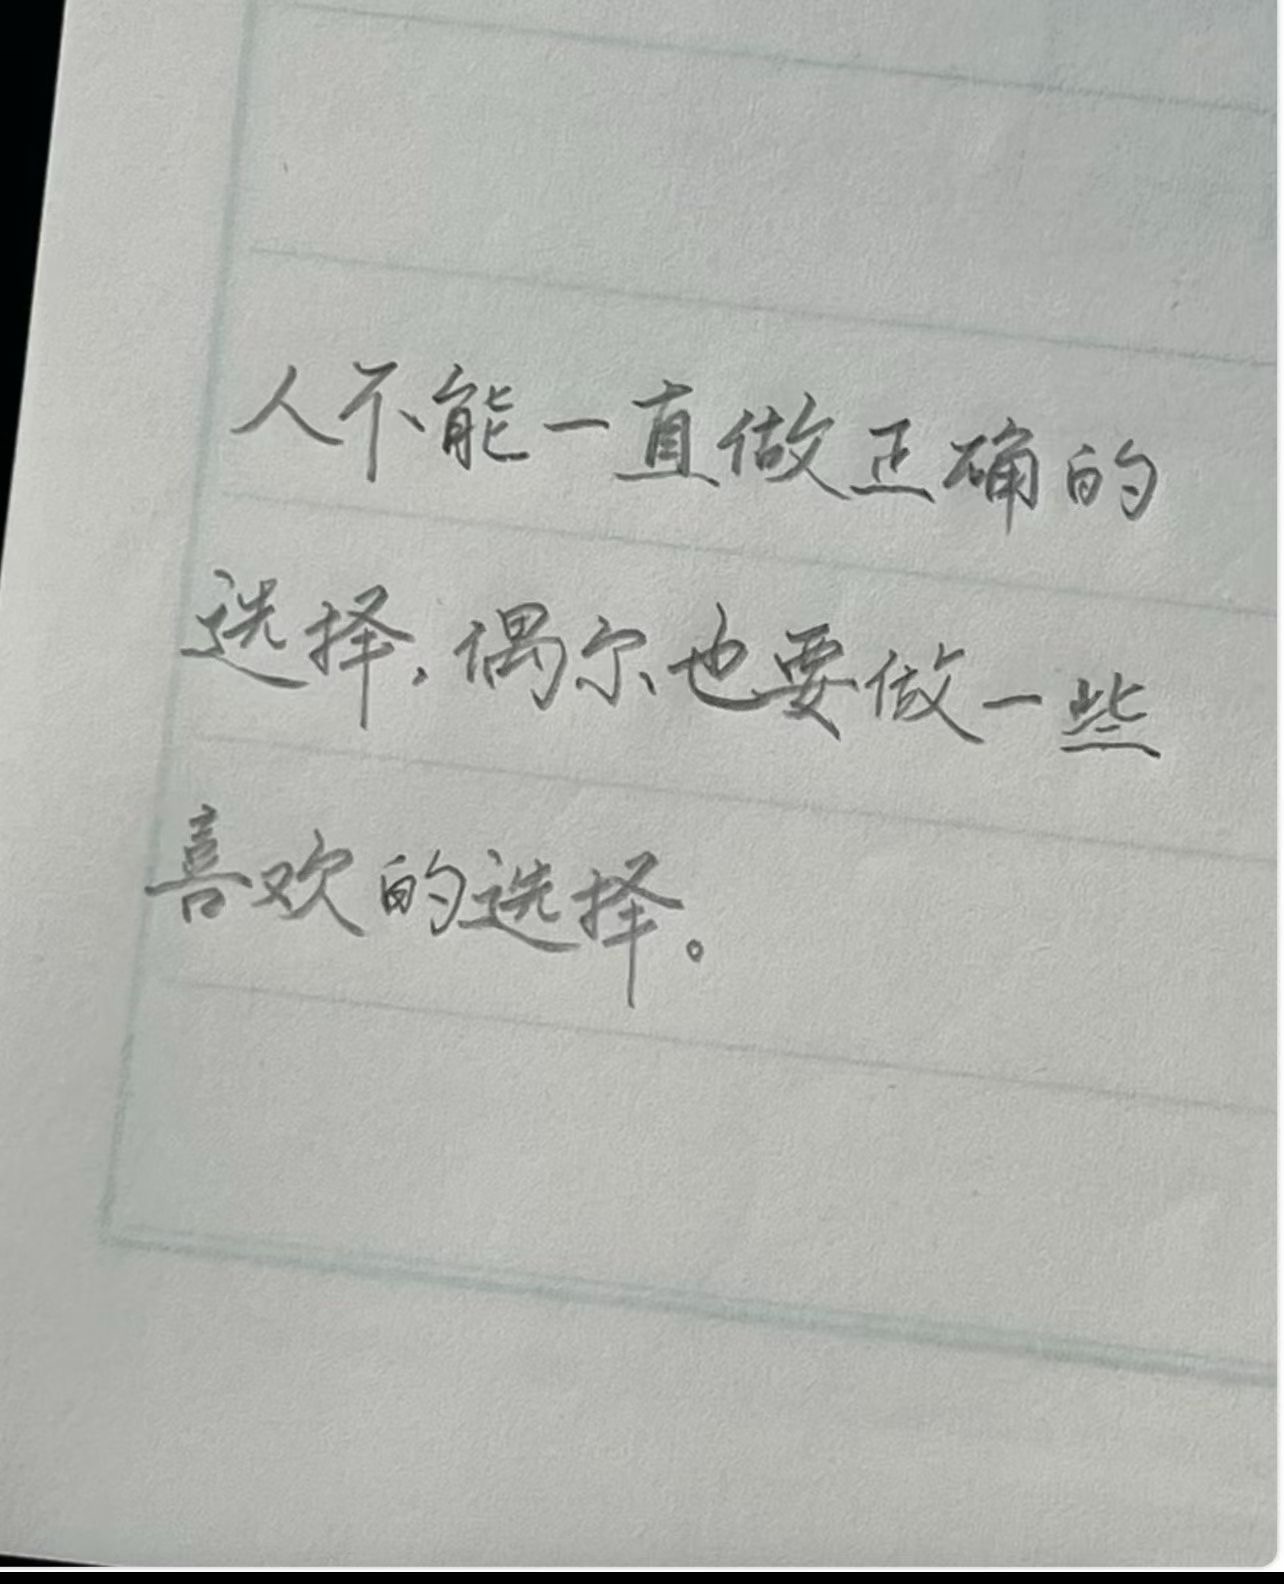 人不能一直做正确的
选择,偶尔也要做一些
喜欢的选择。